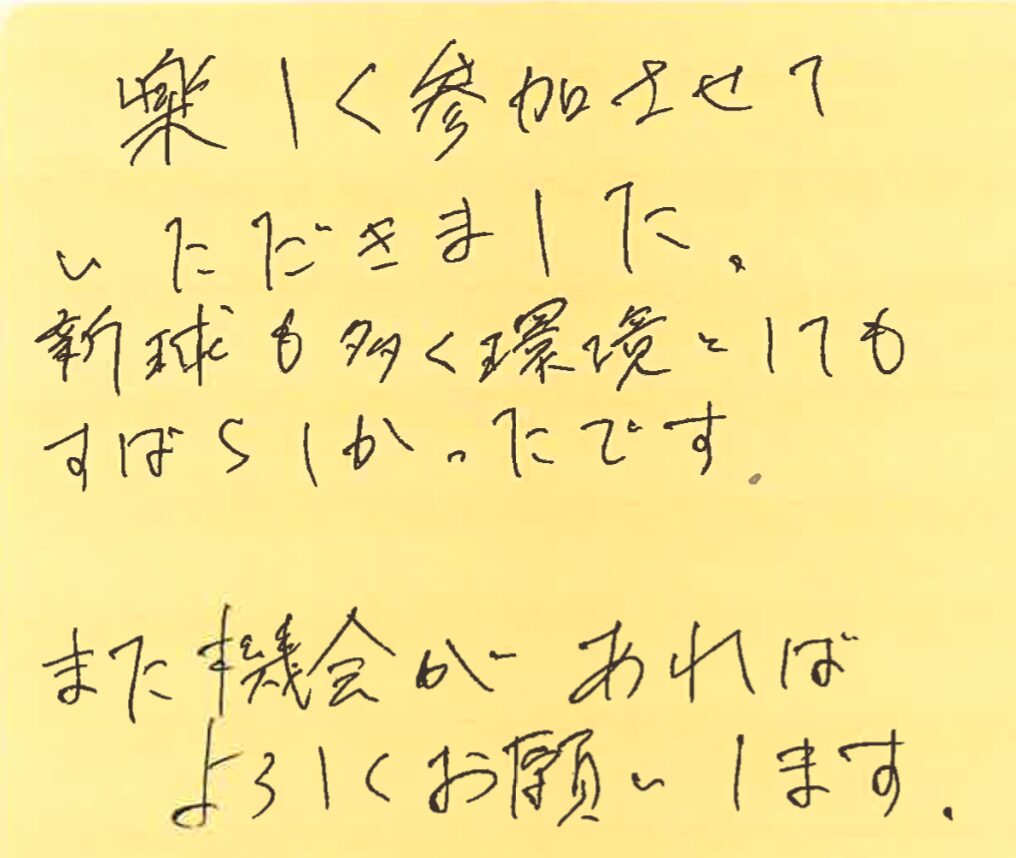 楽しく参加させて
いただきました.
新球も多く環境としても
すばらしかったです.
また機会があれば
よろしくお願いします.